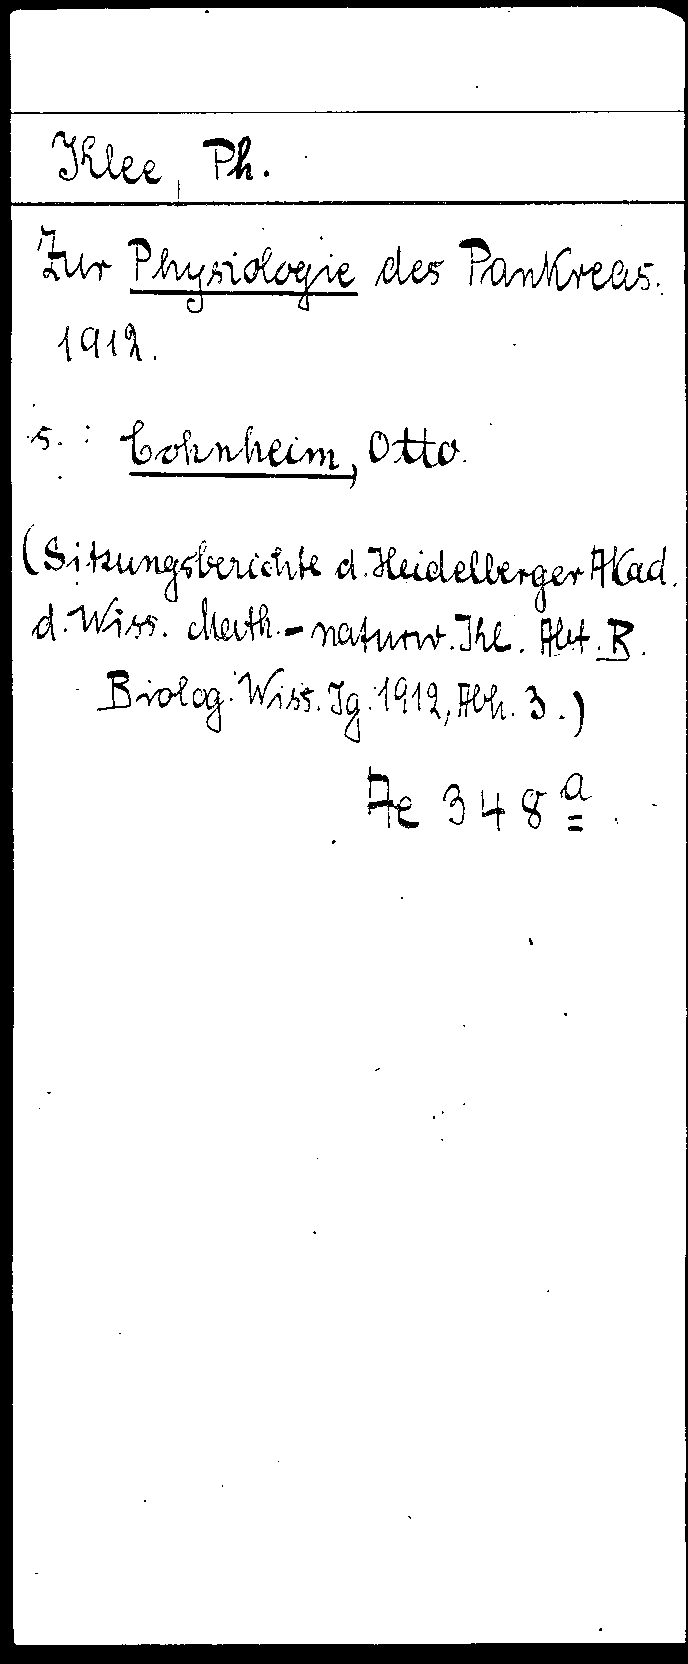 Klee, Ph.
Zur Physiologie des Pankreas.
1912.
s.: Cohnheim, Otto.
(Sitzungsberichte d. Heidelberger Akad.
d. Wiss. Math.-naturw. Kl. Abt. B.
Biolog. Wiss. Jg. 1912, Abh. 3.)
Ae 348 a